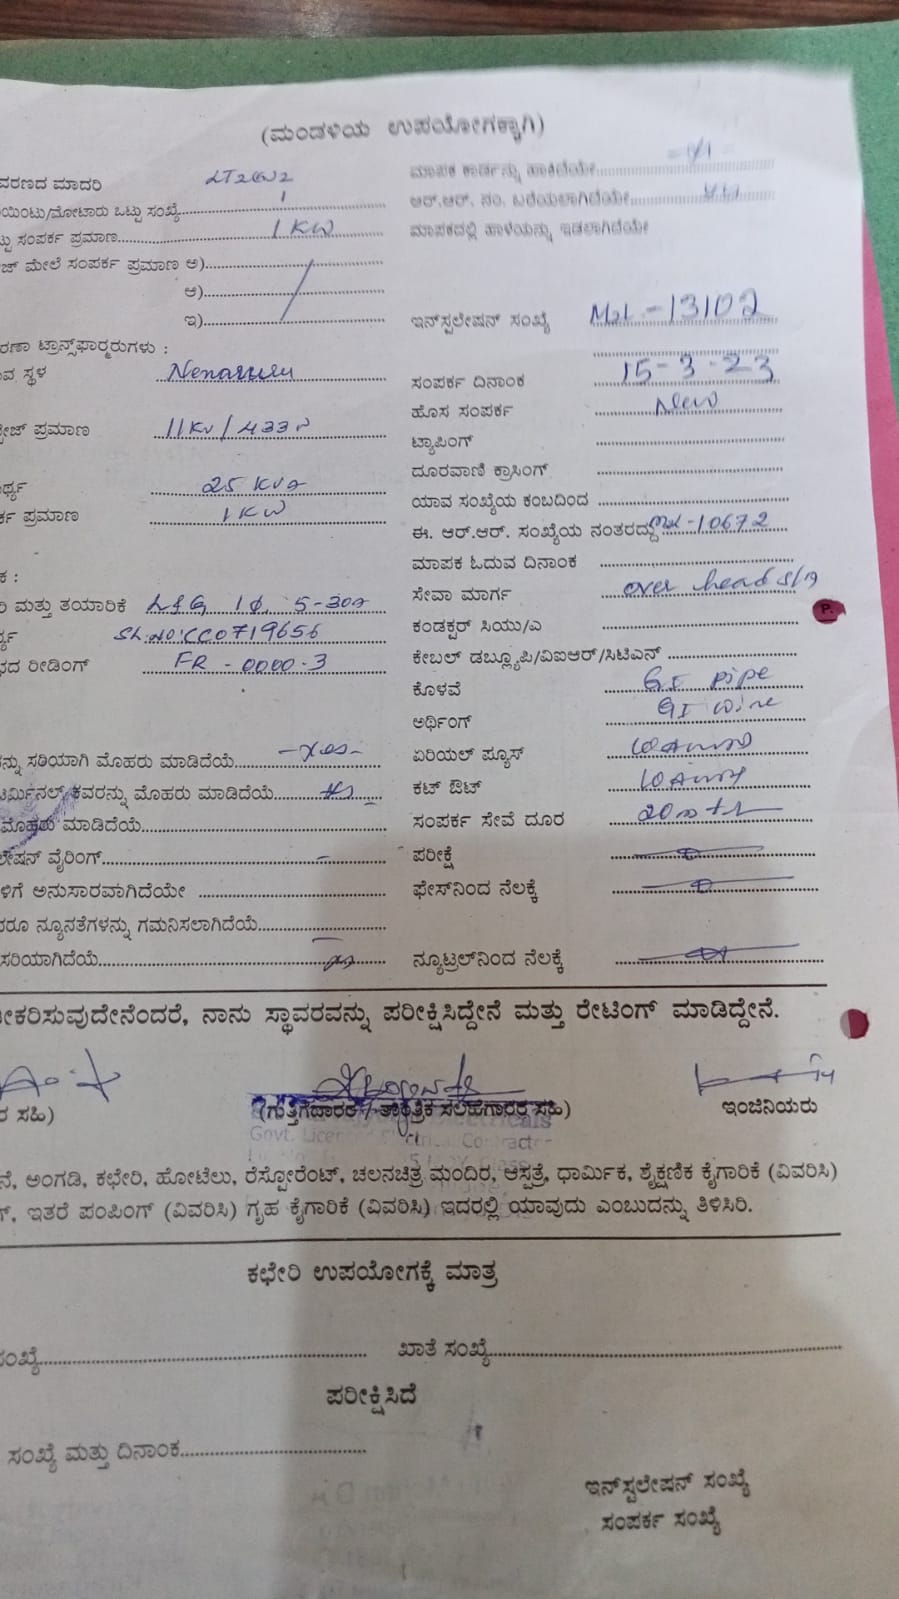 (ಮಂಡಳಿಯ ಉಪಯೋಗಕ್ಕಾಗಿ)
ವರಣದ ಮಾದರಿ ಮಾಪಕ ಕಾರ್ಡನ್ನು ಹಾಕಿದೆಯೇ
ಯಿಂಟು/ಮೋಟಾರು ಒಟ್ಟು ಸಂಖ್ಯೆ 1 ಆರ್.ಆರ್. ನಂ. ಬರೆಯಲಾಗಿದೆಯೇ
ಟ್ಟು ಸಂಪರ್ಕ ಪ್ರಮಾಣ 1 KW ಮಾಪಕದಲ್ಲಿ ಹಾಳೆಯನ್ನು ಇಡಲಾಗಿದೆಯೇ
ಜ್ ಮೇಲೆ ಸಂಪರ್ಕ ಪ್ರಮಾಣ ಅ)
ಆ)
ಇ) ಇನ್‌ಸ್ಟಲೇಷನ್ ಸಂಖ್ಯೆ -13102
ರಣಾ ಟ್ರಾನ್ಸ್‌ಫಾರ್ಮರುಗಳು :
ವ ಸ್ಥಳ ಸಂಪರ್ಕ ದಿನಾಂಕ 15-3-23
ಹೊಸ ಸಂಪರ್ಕ New
್ಟೇಜ್ ಪ್ರಮಾಣ 11KV/433V ಟ್ಯಾಪಿಂಗ್
ದೂರವಾಣಿ ಕ್ರಾಸಿಂಗ್
ರ್ಥ್ಯ 25 KVA ಯಾವ ಸಂಖ್ಯೆಯ ಕಂಬದಿಂದ
ರ್ಕ ಪ್ರಮಾಣ 1KW ಈ. ಆರ್.ಆರ್. ಸಂಖ್ಯೆಯ ನಂತರದ್ದು -10672
ಕ : ಮಾಪಕ ಓದುವ ದಿನಾಂಕ
ರಿ ಮತ್ತು ತಯಾರಿಕೆ L&G 1ϕ. 5-30A ಸೇವಾ ಮಾರ್ಗ over head
ರ್ಥ್ಯ Sl.No:CC0719656 ಕಂಡಕ್ಟರ್ ಸಿಯು/ಎ
ಭದ ರೀಡಿಂಗ್ FR-0000.3 ಕೇಬಲ್ ಡಬ್ಲ್ಯೂಪಿ/ವಿಐಆರ್/ಸಿಟಿಎಸ್
ಕೊಳವೆ GI pipe
ಅರ್ಥಿಂಗ್ GI wire
ನ್ನು ಸರಿಯಾಗಿ ಮೊಹರು ಮಾಡಿದೆಯೆ -yes- ಏರಿಯಲ್ ಫ್ಯೂಸ್
ಟರ್ಮಿನಲ್ ಕವರನ್ನು ಮೊಹರು ಮಾಡಿದೆಯೆ ಕಟ್ ಔಟ್
ಮೊಹರು ಮಾಡಿದೆಯೆ ಸಂಪರ್ಕ ಸೇವೆ ದೂರ
ಲೇಷನ್ ವೈರಿಂಗ್ ಪರೀಕ್ಷೆ
ಳಿಗೆ ಅನುಸಾರವಾಗಿದೆಯೇ ಫೇಸ್‌ನಿಂದ ನೆಲಕ್ಕೆ
ರೂ ನ್ಯೂನತೆಗಳನ್ನು ಗಮನಿಸಲಾಗಿದೆಯೆ
ಸರಿಯಾಗಿದೆಯೆ ನ್ಯೂಟ್ರಲ್‌ನಿಂದ ನೆಲಕ್ಕೆ
ೀಕರಿಸುವುದೇನೆಂದರೆ, ನಾನು ಸ್ಥಾವರವನ್ನು ಪರೀಕ್ಷಿಸಿದ್ದೇನೆ ಮತ್ತು ರೇಟಿಂಗ್ ಮಾಡಿದ್ದೇನೆ.
ರ ಸಹಿ) (ಗುತ್ತಿಗೆದಾರರ / ತಾಂತ್ರಿಕ ಸಲಹೆಗಾರರ ಸಹಿ) ಇಂಜಿನಿಯರು
Govt. Licensed Electrical Contractor
ನೆ, ಅಂಗಡಿ, ಕಛೇರಿ, ಹೋಟೆಲು, ರೆಸ್ಟೋರೆಂಟ್, ಚಲನಚಿತ್ರ ಮಂದಿರ, ಆಸ್ಪತ್ರೆ, ಧಾರ್ಮಿಕ, ಶೈಕ್ಷಣಿಕ ಕೈಗಾರಿಕೆ (ವಿವರಿಸಿ)
ಗ್, ಇತರೆ ಪಂಪಿಂಗ್ (ವಿವರಿಸಿ) ಗೃಹ ಕೈಗಾರಿಕೆ (ವಿವರಿಸಿ) ಇದರಲ್ಲಿ ಯಾವುದು ಎಂಬುದನ್ನು ತಿಳಿಸಿರಿ.
ಕಛೇರಿ ಉಪಯೋಗಕ್ಕೆ ಮಾತ್ರ
ಸಂಖ್ಯೆ ಖಾತೆ ಸಂಖ್ಯೆ
ಪರೀಕ್ಷಿಸಿದೆ
ಸಂಖ್ಯೆ ಮತ್ತು ದಿನಾಂಕ
ಇನ್‌ಸ್ಟಲೇಷನ್ ಸಂಖ್ಯೆ
ಸಂಪರ್ಕ ಸಂಖ್ಯೆ